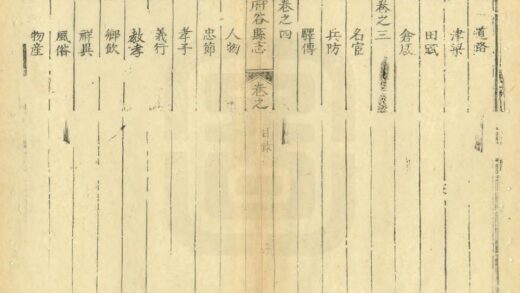 道路
津梁
田賦
卷之三
名宦
兵防
驛傳
卷之四
府谷縣志 卷之 目錄 二
人物
忠節
孝子
義行
鄉飲
祥異
風俗
物産